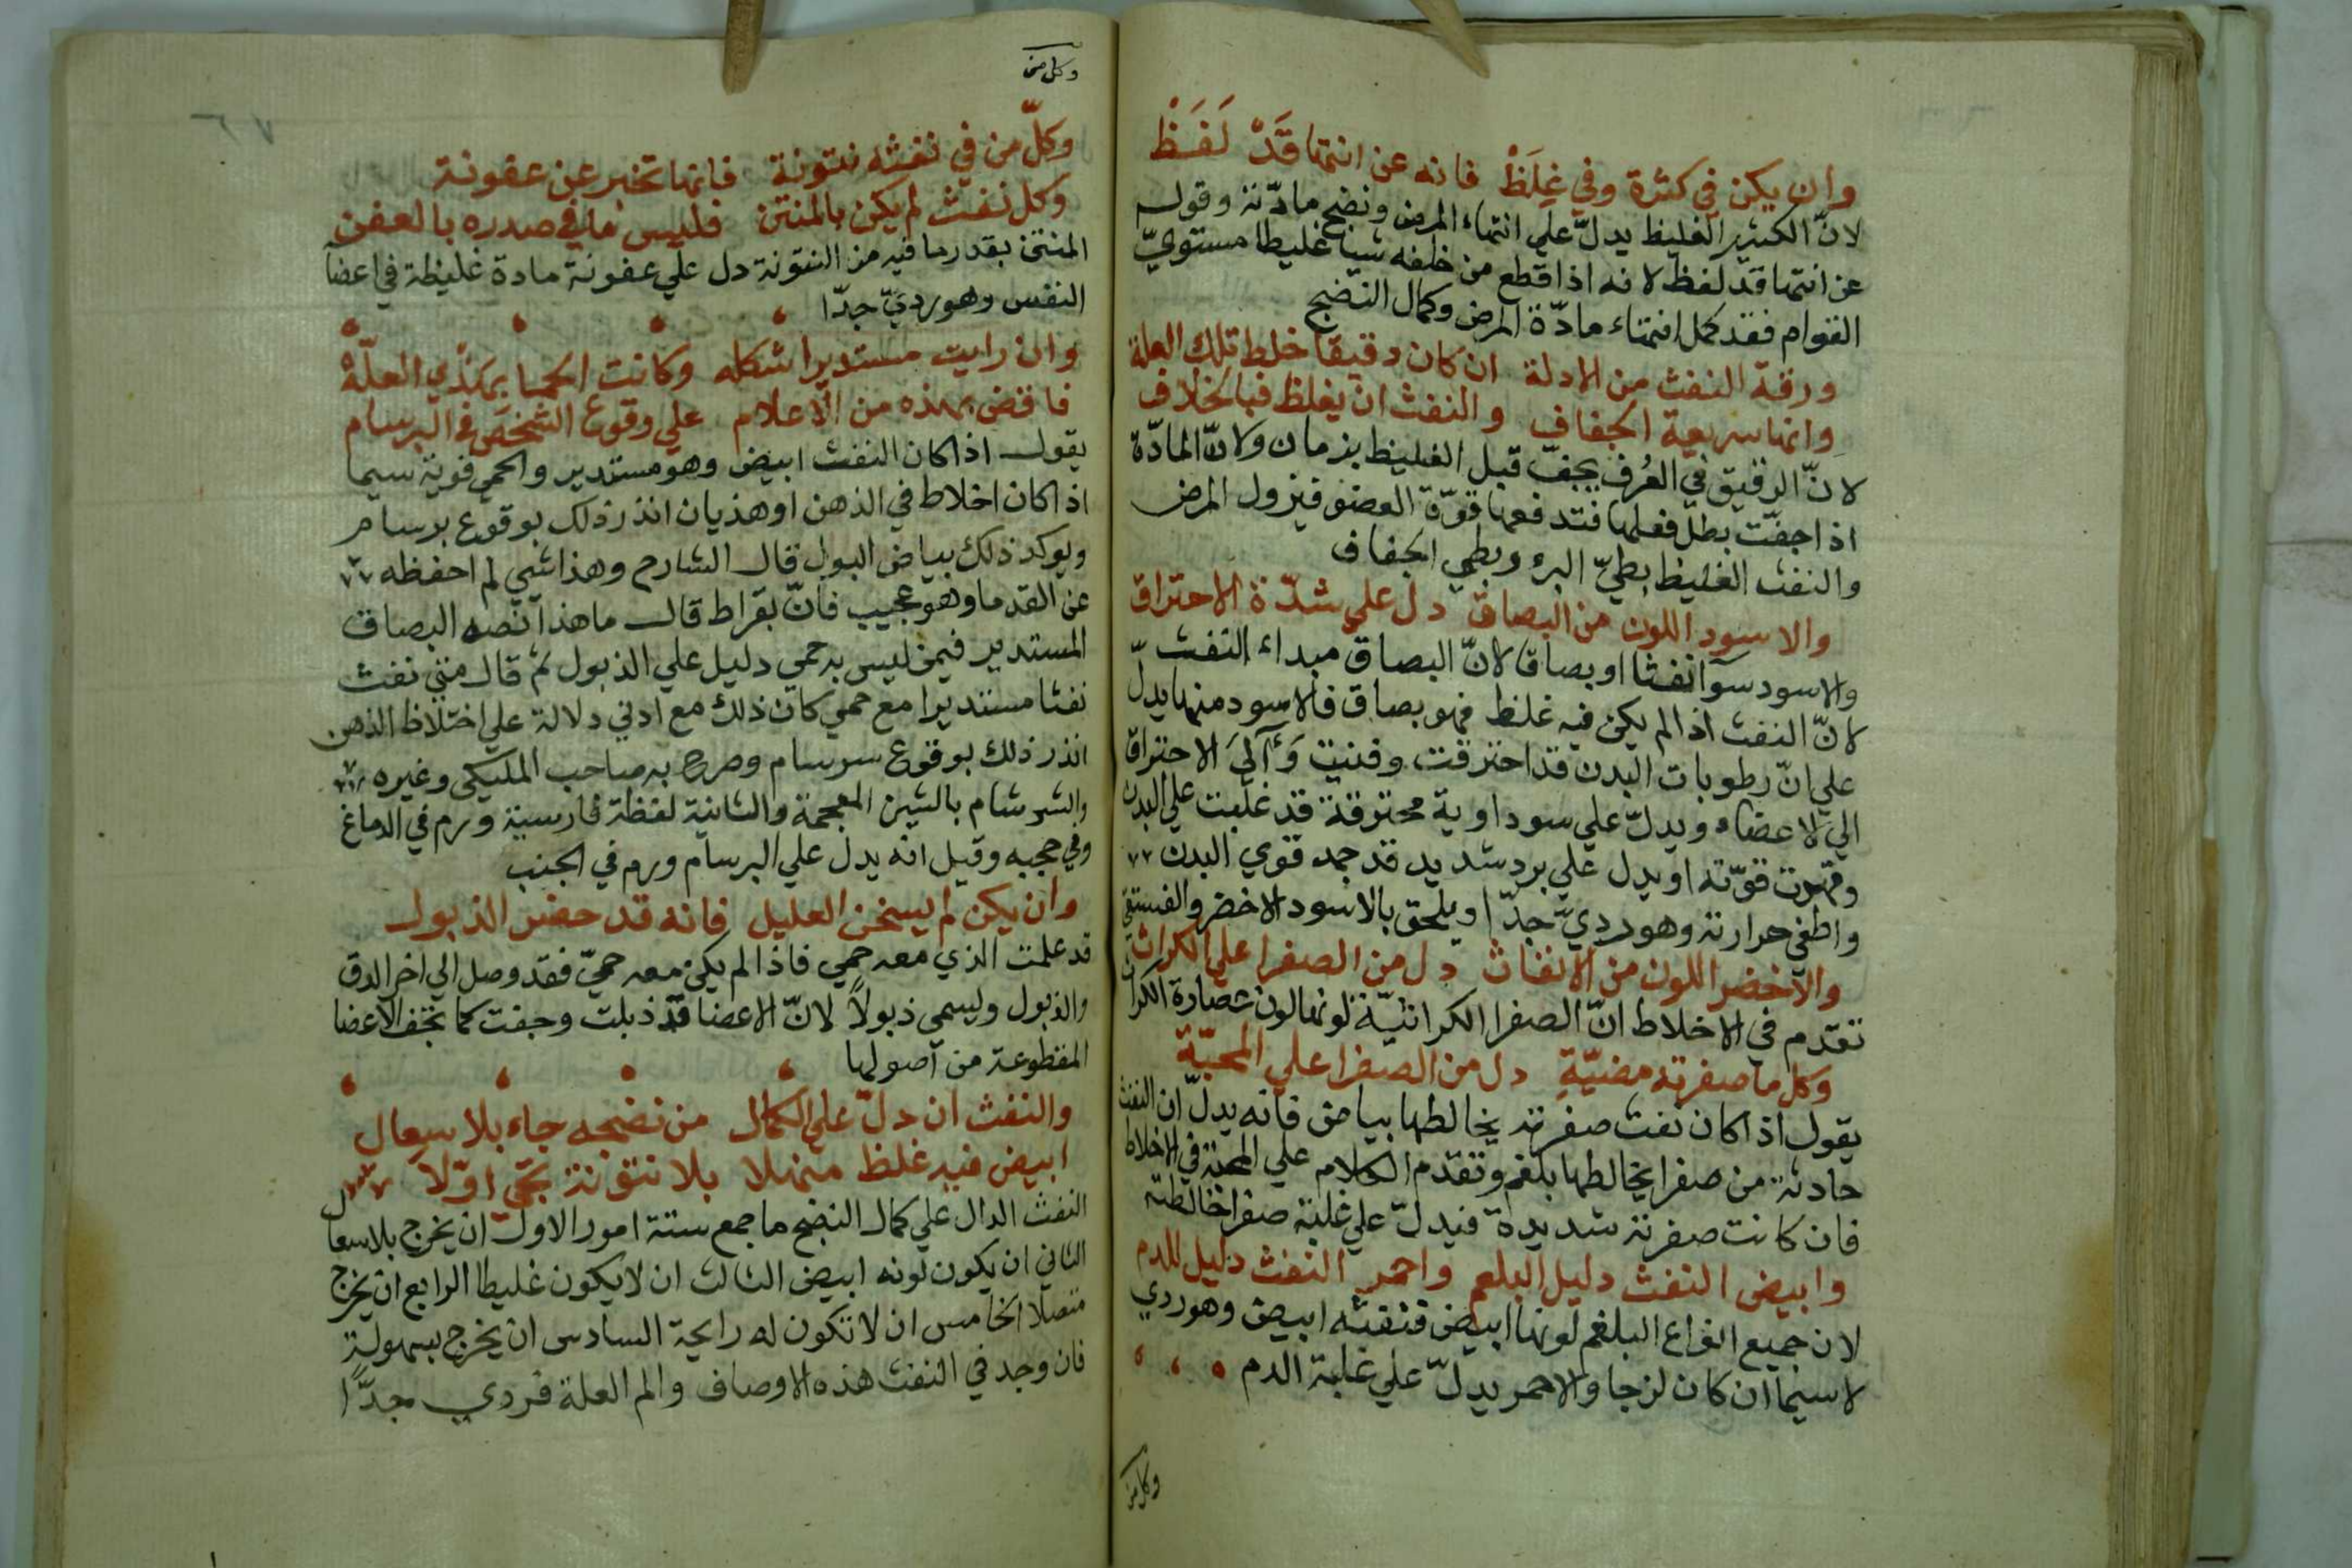 وان يكن في كثرة وفي غِلَظْ فانه عن انتها قَدْ لَفَظْ
لانّ الكثير الغليظ يدلّ علي انتهاء المرض ونضج مادّته وقوله
عن انتها قد لفظ لانه اذا قطع من خلفه شيا غليظا مستويّ
القوام فقد كمل انتهاء مادّة المرض وكمال النضج
ورقة النفث من الادلة ان كان دقيقا خلط تلك العلة
وانها سريعة الجفاف والنفث ان يغلظ فبالخلاف
لانّ الرقيق في العُرف يجفّ قبل الغليظ بزمان ولانّ المادّة
اذا جفّت بطل فعلها فتدفعها قوّة العضو فيزول المرض
والنفث الغليظ بطيّ البرء وبطي الجفاف
والاسود اللون من البصاق دل علي شدّة الاحتراق
والاسود سوآ نفثا او بصاقا لانّ البصاق مبداء النفث
لانّ النفث اذا لم يكن فيه غلظ فهو بصاق فالاسود منها يدلّ
علي انّ رطوبات البدن قد احترقت وفنيت وَآلَي الاحتراق
الي الاعضاء ويدلّ علي سوداوية محترقة قد غلبت علي البدن
وقهرت قوّته او يدل علي برد شديد قد جمد قوي البدن
واطفي حرارته وهو رديّ جدّا ويلحق بالاسود الاخضر والفستقي
والاخضر اللون من الانفاث دل من الصفرا علي الكراث
تقدم في الاخلاط انّ الصفرا الكراثيّة لونها لون عصارة الكراث
وكل ما صفرته مضيّةِ دل من الصفرا علي المحيّة
يقول اذا كان نفث صفرته يخالطها بياض فانه يدلّ ان النفث
حادثة من صفرا يخالطها بلغم وتقدم الكلام علي المحية في الاخلاط
فان كانت صفرته شديدة فيدلّ علي غلبة صفرا خالطته
وابيض النفث دليل البلغم واحمر النفث دليل للدم
لان جميع انواع البلغم لونها ابيض فنفثه ابيض وهو ردي
لاسيما ان كان لزجا والاحمر يدلّ علي غلبة الدم
وكل من
وكل من
وكلّ من في نفثه نتونة فانها تخبر عن عفونة
وكل نفث لم يكن بالمنتن فليس ما في صدره بالعفن
المنتن بقدر ما فيه من النتونة دل علي عفونة مادة غليظة في اعضآ
النفس وهو رديّ جدّا
وان رايت مستديرا شكله وكانت الحما بهَذْي العلّهْ
فاقض بهذه من الاعلام علي وقوع الشخص في البرسام
يقول اذا كان النفث ابيض وهو مستدير والحمي قوية سيما
اذا كان اخلاط في الذهن او هذيان انذر ذلك بوقوع برسام
ويوكد ذلك بياض البول قال الشارح وهذا شي لم احفظه
عن القدما وهو عجيب فانّ بقراط قال ما هذا نصه البصاق
المستدير فيمن ليس به حمي دليل علي الذبول ثم قال متي نفث
نفثا مستديرا مع حمي كان ذلك مع ادني دلالة علي اختلاط الذهن
انذر ذلك بوقوع سرسام وصرح به صاحب المليكي وغيره
والشرشام بالشين المعجمة والثانية لفظة فارسية ورم في الدماغ
وفي حجبه وقيل انه يدل علي البرسام ورم في الجنب
وان يكن لم يسخن العليل فانه قد حضر الذبول
قد علمت الذي معه حمي فاذا لم يكن معه حميّ فقد وصل الي اخر الدق
والذبول وليسمي ذبولاً لانّ الاعضا قد ذبلت وجفت كما تجف الاعضا
المقطوعة من اصولها
والنفث ان دلّ علي الكمال من نضجه جاء بلا سعال
ابيض فيه غلظ متصلا بلا نتونة يجي اوّلا
النفث الدال علي كمال النضج ما جمع ستة امور الاول ان يخرج بلا سعال
الثاني ان يكون لونه ابيض الثالث ان لا يكون غليظا الرابع ان يخرج
متصلا الخامس ان لا تكون له رايحة السادس ان يخرج بسهولةٍ
فان وجد في النفث هذه الاوصاف والم العلة فردي جدّا